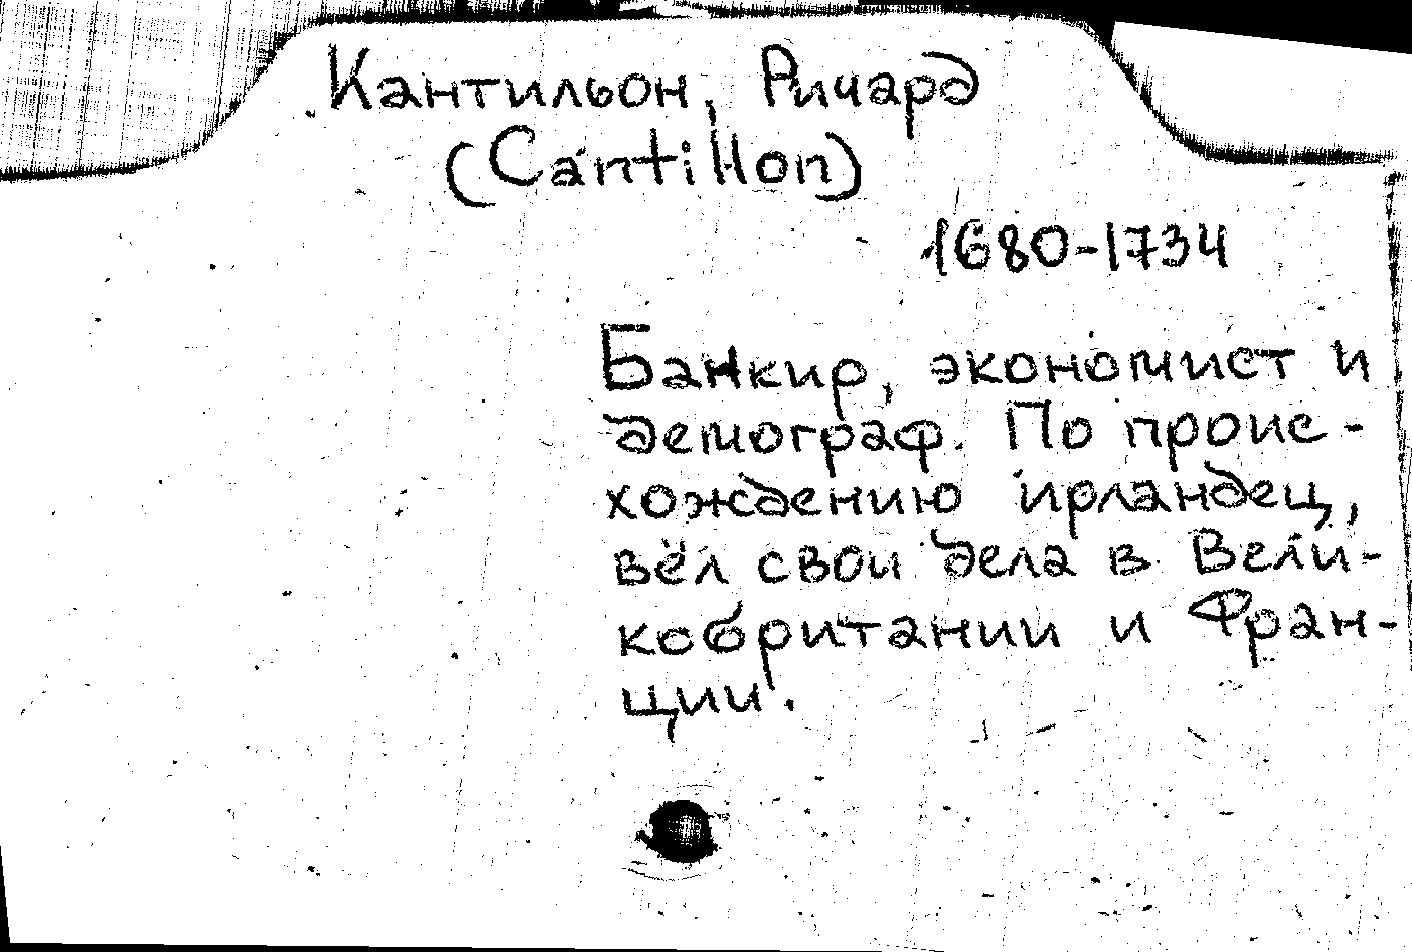 Кантильон, Ричард
(Cantillon)
1680-1734
Банкир, экономист и
демограф. По проис-
хождению ирландец,
вёл свои дела в Вели-
кобритании и Фран-
ции.